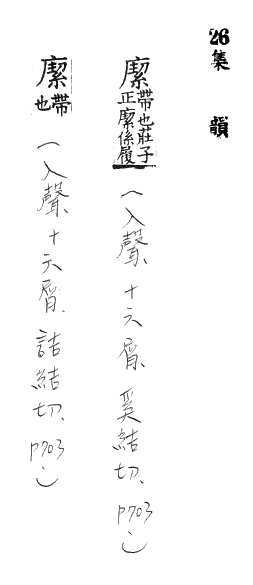 26 集 韻
緳 帶也莊子正緳係履 (入聲、十六屑、奚結切、P703)
緳 帶也 (入聲、十六屑、詰結切、P703)